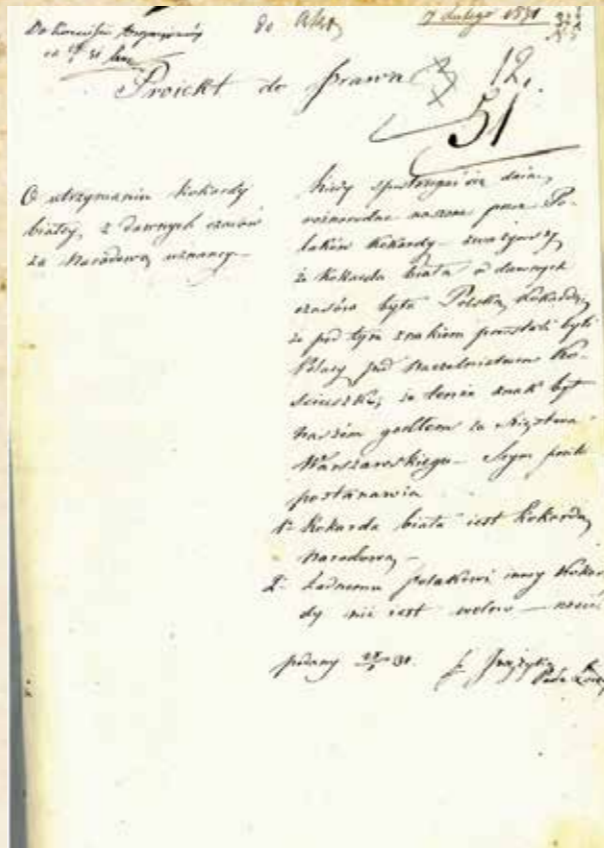 Do Kommissii
do Akt
7 Lutego 1831
Proiekt do prawa
12.
51
O utrzymaniu kokardy
białey, z dawnych czasów
za Narodową uznaney
Kiedy się daie
noszenie przez Po-
laków kokardy zważywszy
że kokarda biała od dawnych
czasów była Polską kokardą,
że pod tym znakiem powstali byli
Polacy pod naczelnictwem Ko-
sciuszki, że tenże znak był
naszém godłem za Xięstwa
Warszawskiego Seym
postanawia
1° Kokarda biała iest kokardą
narodową
2° Żadnemu polakowi inney Kokar-
dy nie iest wolno nosić
podany